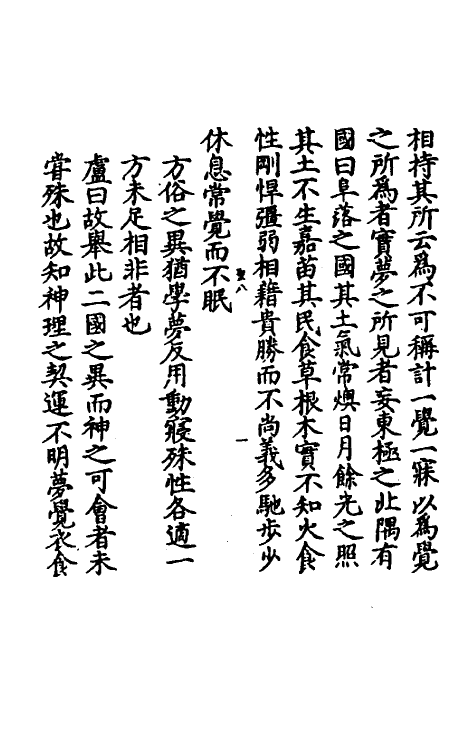 相持其所云為不可稱計一覺一寐以為覺
之所為者實夢之所見者妄東極之北隅有
國曰阜落之國其土氣常燠日月餘光之照
其土不生嘉苗其民食草根木實不知火食
性剛悍彊弱相藉貴勝而不尚義多馳步少
聖八
一
休息常覺而不眠
方俗之異猶學夢反用動寢殊性各適一
方未足相非者也
盧曰故舉此二國之異而神之可會者未
甞殊也故知神理之契運不明夢覺衣食